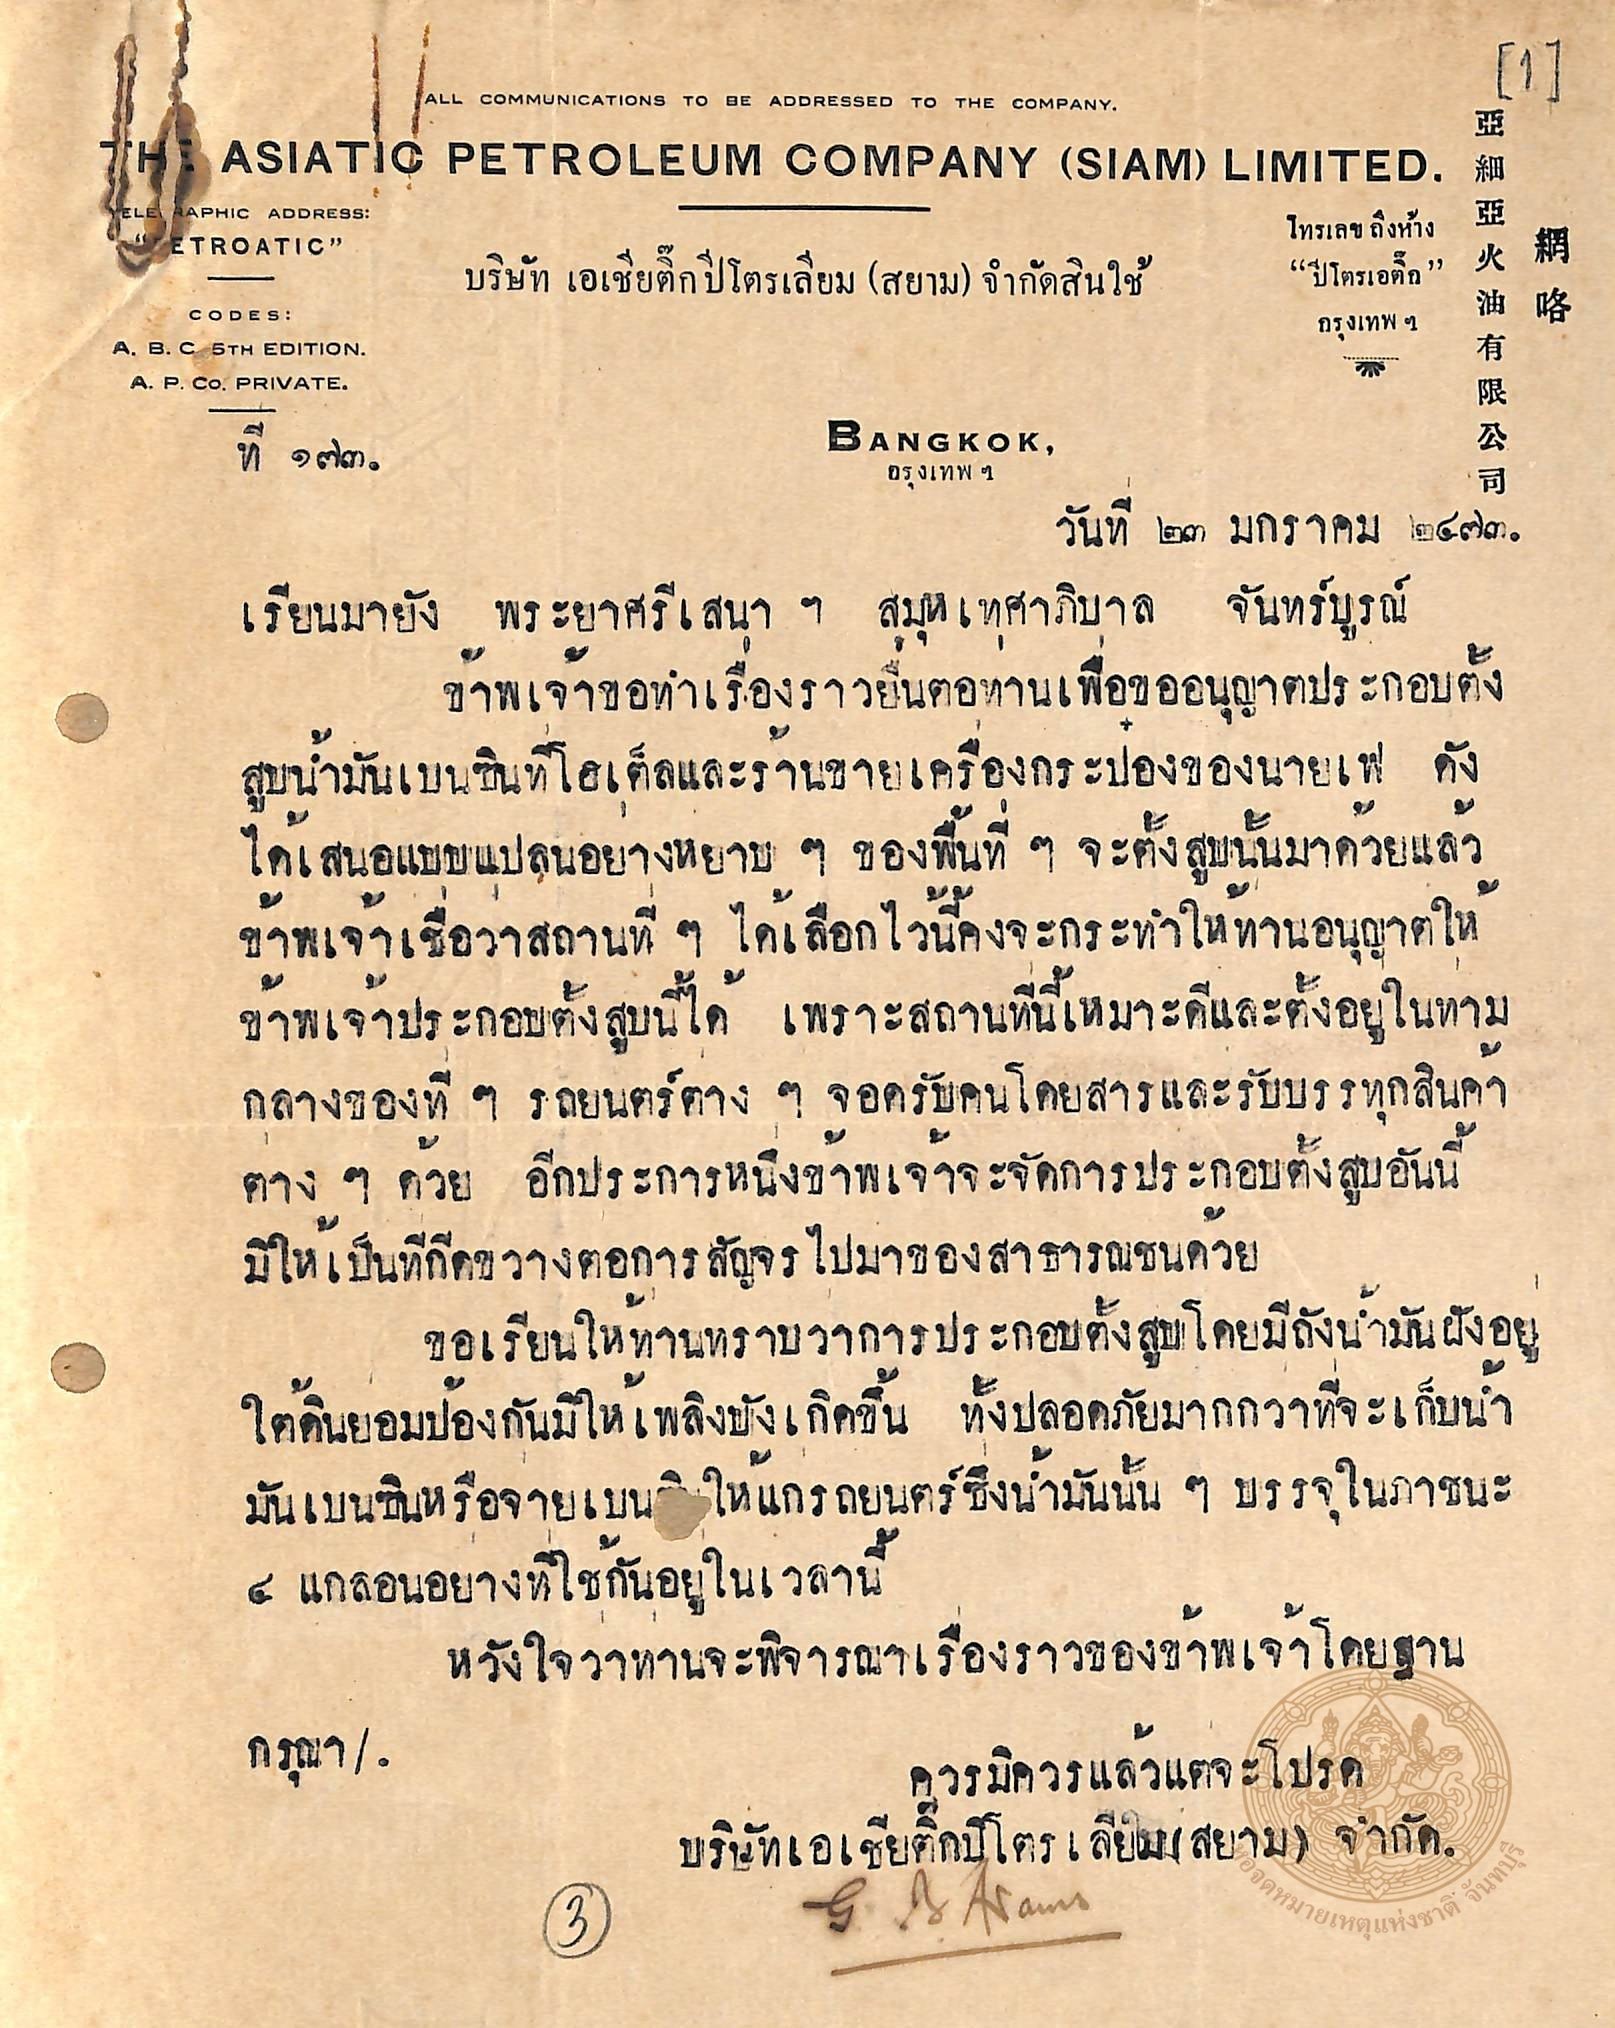 [1]
ALL COMMUNICATIONS TO BE ADDRESSED TO THE COMPANY.
THE ASIATIC PETROLEUM COMPANY (SIAM) LIMITED.
TELEGRAPHIC ADDRESS:
"PETROATIC"
CODES:
A. B. C. 5TH EDITION.
A. P. Co. PRIVATE.
บริษัท เอเชียติ๊กปีโตรเลียม (สยาม) จำกัดสินใช้
ไทรเลข ถึงห้าง
"ปีโตรเอติ๊ก"
กรุงเทพ ฯ
亞細亞火油有限公司
網咯
ที่ ๑๗๓.
BANGKOK,
กรุงเทพ ฯ
วันที่ ๒๓ มกราคม ๒๔๗๓.
เรียนมายัง พระยาศรีเสนา ฯ สมุหเทศาภิบาล จันทร์บูรณ์
ข้าพเจ้าขอทำเรื่องราวยื่นต่อท่านเพื่อขออนุญาตประกอบตั้ง
สูบน้ำมันเบนซินที่โฮเต็ลและร้านขายเครื่องกระป๋องของนายเฟ ดัง
ได้เสนอแบบแปลนอย่างหยาบ ๆ ของพื้นที่ ๆ จะตั้งสูบนั้นมาด้วยแล้ว
ข้าพเจ้าเชื่อว่าสถานที่ ๆ ได้เลือกไว้นี้คงจะกระทำให้ท่านอนุญาตให้
ข้าพเจ้าประกอบตั้งสูบนี้ได้ เพราะสถานที่นี้เหมาะดีและตั้งอยู่ในท่าม
กลางของที่ ๆ รถยนตร์ต่าง ๆ จอดรับคนโดยสารและรับบรรทุกสินค้า
ต่าง ๆ ด้วย อีกประการหนึ่งข้าพเจ้าจะจัดการประกอบตั้งสูบอันนี้
มิให้เป็นที่กีดขวางต่อการสัญจรไปมาของสาธารณชนด้วย
ขอเรียนให้ท่านทราบว่าการประกอบตั้งสูบโดยมีถังน้ำมันฝังอยู่
ใต้ดินย่อมป้องกันมิให้เพลิงพังเกิดขึ้น ทั้งปลอดภัยมากกว่าที่จะเก็บน้ำ
มันเบนซินหรือจ่ายเบนซินให้แก่รถยนตร์ซึ่งน้ำมันนั้น ๆ บรรจุในภาชนะ
๔ แกลอนอย่างที่ใช้กันอยู่ในเวลานี้
หวังใจว่าท่านจะพิจารณาเรื่องราวของข้าพเจ้าโดยฐาน
กรุณา/.
ควรมิควรแล้วแต่จะโปรด
บริษัทเอเชียติ๊กปีโตรเลียม(สยาม) จำกัด.
G. B. Adams
3
หอจดหมายเหตุแห่งชาติฯ จันทบุรี